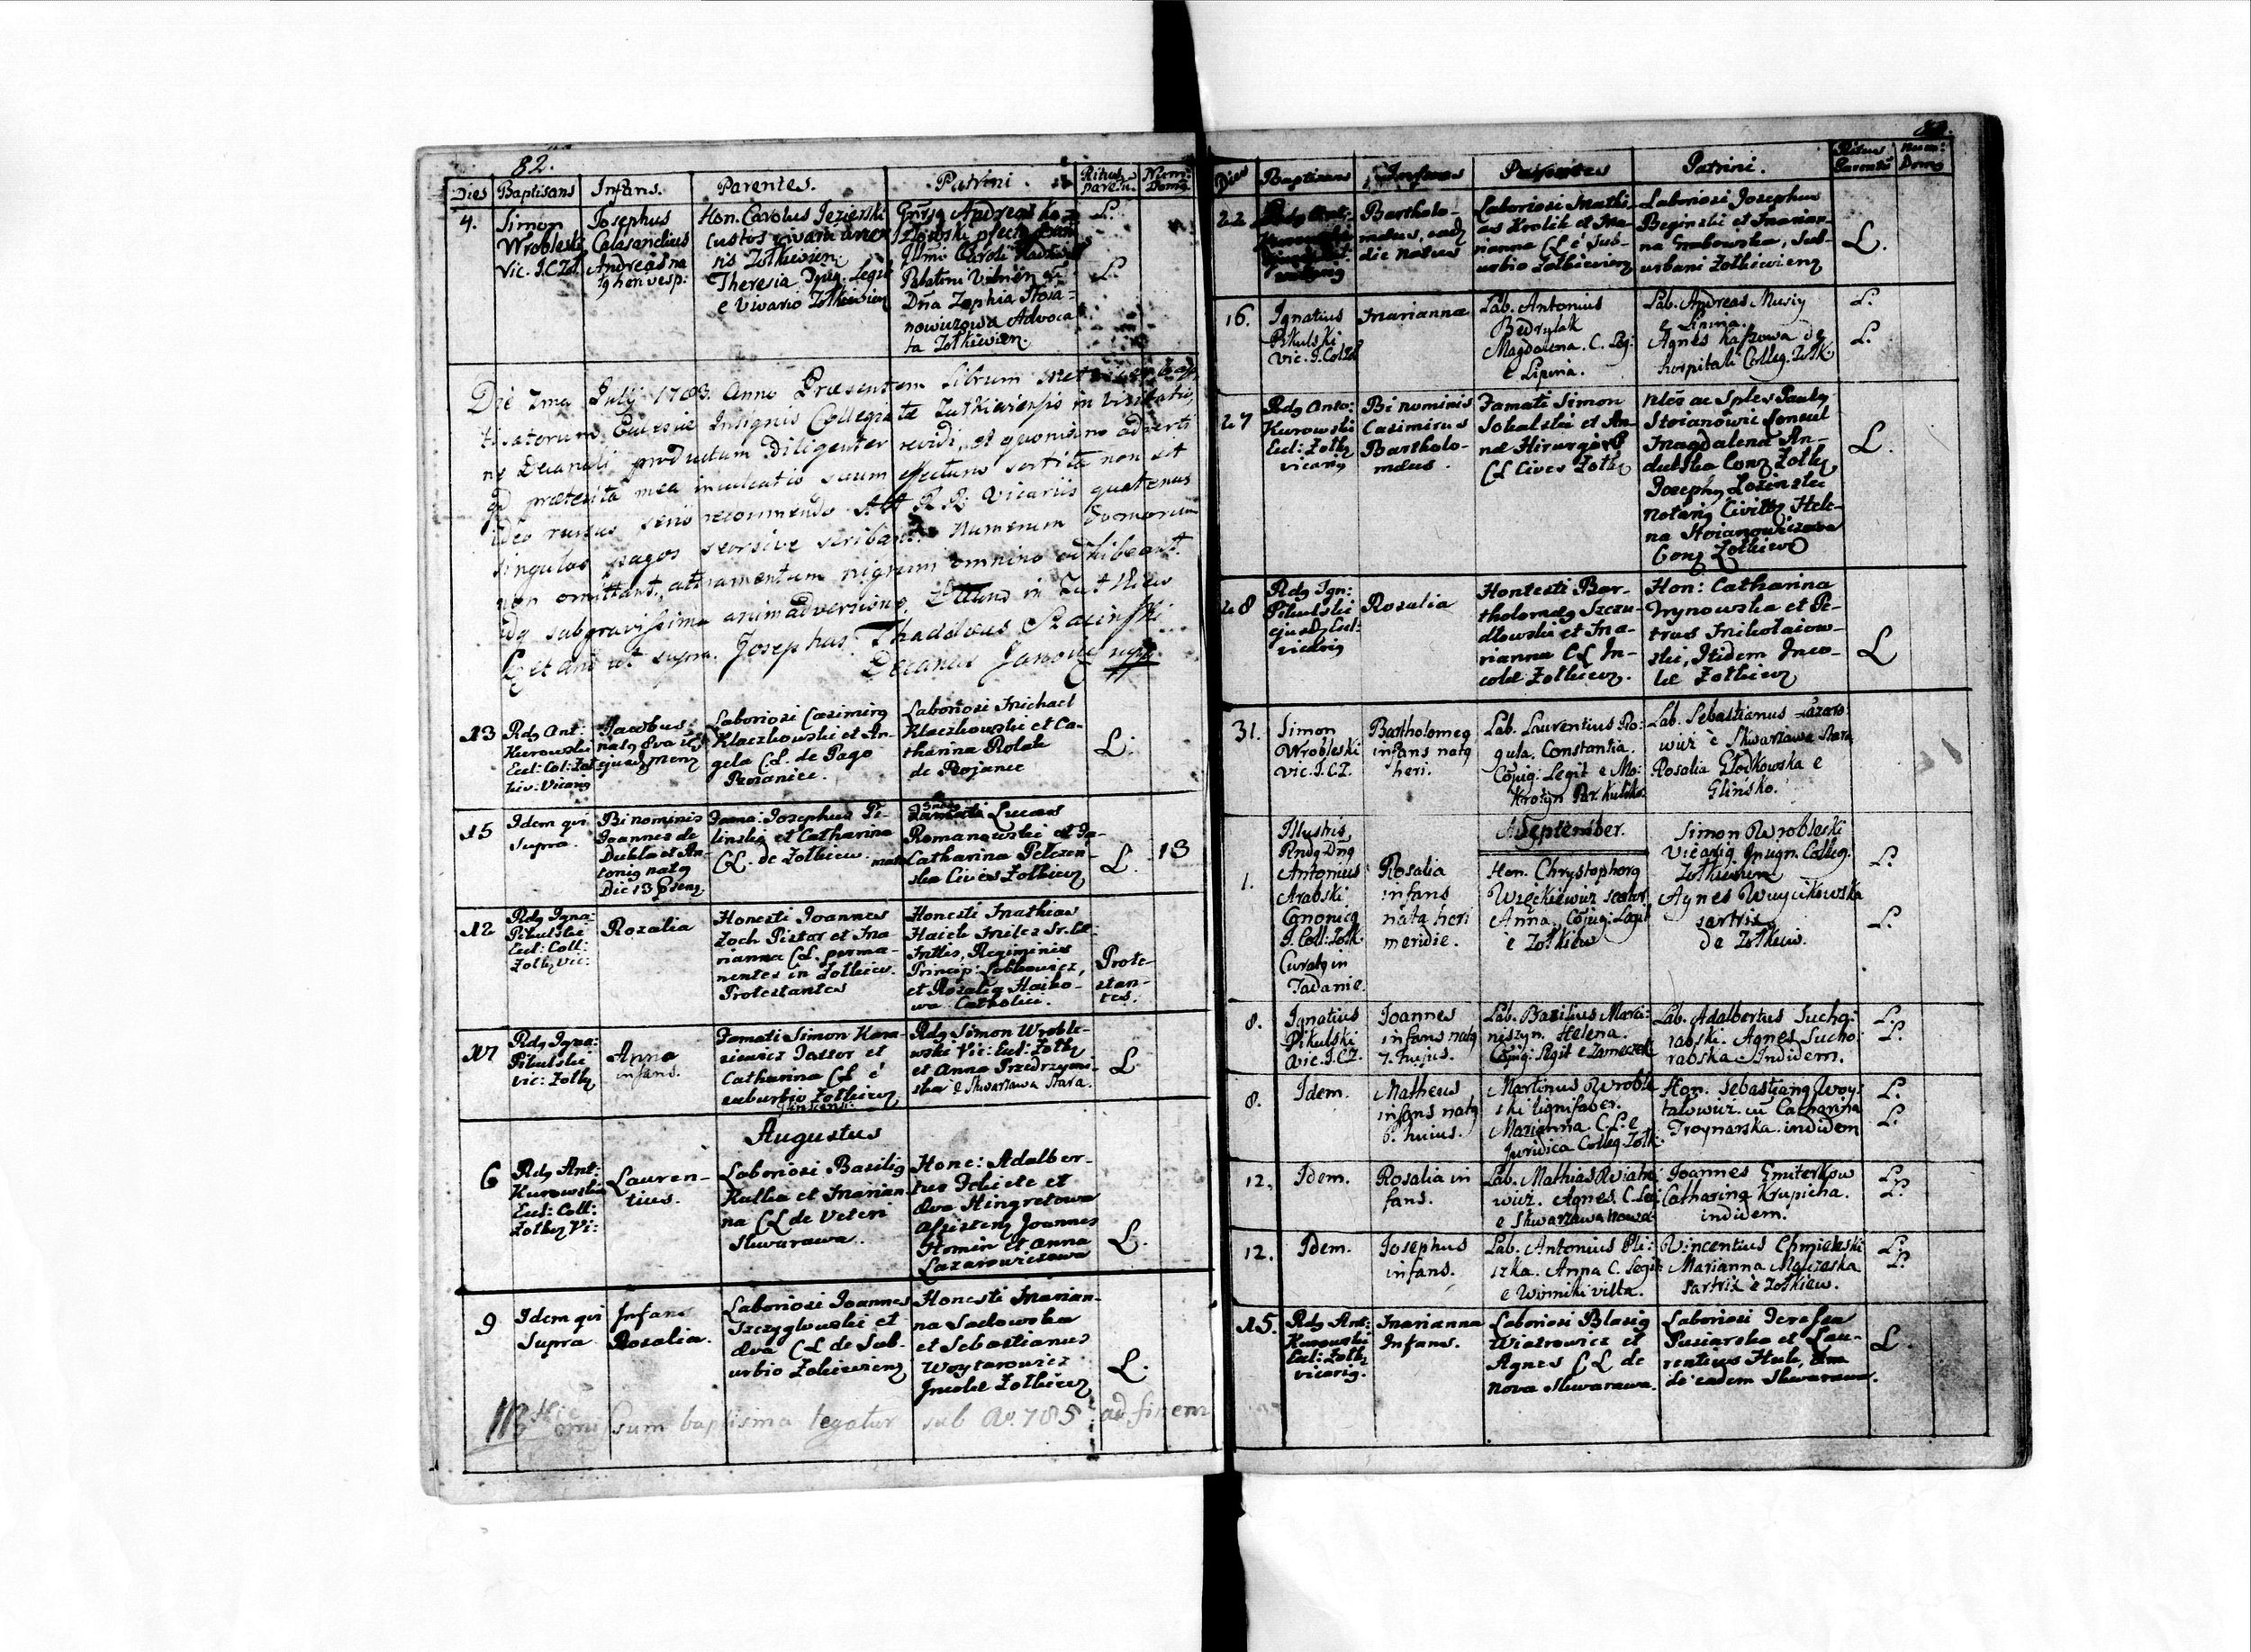 82.
Dies Baptisans Infans. Parentes. Patrini. Ritus paren. Num: Domus
4. Simon
Wrobleski
Vic. I.C.Zol.
Josephus
Calasanctius
Andreas na
heri vesp:
Hon. Carolus Jezierski
Custos vivarii
Zołkiewien
Theresia Conjug. Legit
e Vivario Zolkiewien
Andreas Ko
złowski
Illmi Caroli Radziwił
Palatini Vilnen
Dna Zophia Stoia=
nowiczowa Advoca
ta Zolkiewien.
L.
L.
Die 7ma Julij 1783 Anno Praesentem Librum Met Bap
tisatorum Ecclesiae Insignis Collegiatae Zułkieviensis in Visitatio
ne Decanali productum Diligenter revidi, et quoniam adverti
qd praeterita mea inculcatio suum effectum sortita non sit
ideo rursus serio recommendo RR. Vicariis quatenus
singulos pagos seorsive scribant. Numerum domorum
non omittant, attramentum nigrum omnino adhibeant.
sub gravissima animadversione. Datum in Zułkiew
et ano ut supra. Josephus Thaddaeus
Decanus
13 Rdg Ant:
Kurowski
Eccl: Col: Zol
kiew: Vicarig
Jacobus:
natg
ejusd menz
Laboriosi Casimirg
Klaczkowski et An-
gela CL. de Pago
Laboriosi Michael
Klaczkowski et Ca-
tharina Rolak
de Rojance
L.
15 Idem qui
Supra.
Binominis
Joannes de
Dukla et An-
tonig natg
Die 13
Fama: Josephus Pi-
linski et Catharina
CL. de Zolkiew.
Lucas
Romanowski et
Catharina Pelczen-
ska Cives Zolkiew
L. 13
12 Rdg Igna:
Pikulski
Eccl: Coll:
Zolkg Vic:
Rozalia
Honesti Joannes
Zoch Pistor et Ma
rianna CL. perma-
nentes in Zolkiew.
Protestantes
Honesti Mathias
Haich Miles
Regiminis
Princip: Lobkowicz,
et Rozalia Haiko-
wa Catholici.
Protes-
tan-
tes.
17 Rdg Igna:
Pikulski
Vic: Zolkg
Anna
infans.
Famati Simon Kara
siewicz Sartor et
Catharina CL è
suburbio Zolkiewz
Rdg Simon Wroble-
wski Vic: Eccl: Zolkg
et Anna
ska e Skwarzawa Stara.
L
Augustus
6 Rdg Ant:
Kurowski
Eccl: Coll:
Zolkg Vi:
Lauren-
tius.
Laboriosi Basilig
Kulka et Marian
na CL de Veteri
Skwarawa.
Hone: Adalber-
tus et
Eva Hingretowa
Assisteng Joannes
Homin et Anna
Lazarowiczowa
L.
9 Idem qui
Supra
Infans
Rosalia.
Laboriosi Joannes
Szczyglowski et
Eva CL de Sub-
urbio Zolkiewienz
Honesti Marian-
na Sadowska
et Sebastianus
Woytarowicz
Incolae Zolkiewz
L.
omissum baptisma legatur sub Ao. 785 ad finem
Dies Baptisans Infans Parentes Patrini. Ritus Parentũ Num: Domg
22
Bartholo-
maeus, eadz
die natus
Laboriosi Mathi
as Krolik et Ma
rianna CL è Sub-
urbio Zolkiewienz
Laboriosi Josephus
Beginski et Marian-
na Grabowska, Sub-
urbani Zolkiewienz
L.
16. Ignatius
Pikulski
Vic. I. Col Zol
Marianna
Lab. Antonius
Bedrylak
Magdalena. C. Leg:
e Lipina.
Lab. Andreas Musiy
e Lipina.
Agnes de
hospitali Colleg. Zolk.
L.
L.
27 Rdg Anto:
Kurowski
Eccl: Zolkg
vicarig
Binominis
Casimirus
Bartholo-
maeus.
Famati Simon
Sokalski et An-
na
CL Cives Zolkg
Nles ac Sples Paulg
Stoianowic Consul
Magdalena An-
dulska Conz Zolkg
Josephg
Notarig Civitg Hele-
na Stoianowiczowa
Conz Zolkiew
L.
28 Rdg Ign:
Pikulski
ejusdz Eccl:
vicarig
Rosalia
Hontesti Bar-
tholomeg Szczu-
dlowski et Ma-
rianna CL In-
colae Zolkiewz.
Hon: Catharina
Wrynowska et Pe-
trus Mikolaiow-
ski, Itidem Inco-
lae Zolkiewz
L
31. Simon
Wrobleski
Vic. I. C. Z.
Bartholomeg
infans natg
heri.
Lab. Laurentius Ro:
gula. Constantia.
Cojug: Legit e Mo:
krotyn Par. Kuliko.
Lab. Sebastianus Lazaro:
wicz è Skwarzawa Stara
Rosalia Głodkowska e
Glińsko.
September.
1. Illustris,
Rndg Dng
Antonius
Arabski
Canonicg
I. Coll: Zolk
Curatg in
Zadanie.
Rosalia
infans
nata heri
meridie.
Hon. Chrystophorg
Więckiewicz
Anna, Cojug: Legit
e Zołkiew
Simon Wrobleski
Vicarig Insign. Colleg.
Zolkievien
Agnes Wuycikowska
sartrix
de Zołkiew.
L.
L.
8. Ignatius
Pikulski
Vic. I. C. Z.
Joannes
infans natg
7. hujus.
Lab. Basilius Marci:
niszyn. Helena.
Cojug: Legit e Zameczek
Lab. Adalbertus Sucho:
rabski. Agnes Sucho:
rabska Indidem.
L.
L.
8. Idem.
Matheus
infans natg
6. huius.
Martinus Wroble
ski lignifaber.
Marianna. C. L. e
Juridica Colleg. Zolk.
Hon. Sebastiang Woy:
talowicz. cũ Catharina
Troynarska. indidem
L.
L.
12. Idem.
Rosalia in
fans.
Lab. Mathias Wiatro
wicz. Agnes. C. Leg:
e Skwarzawa Nowa.
Joannes Gmiterkow
Catharina Krupicha.
indidem.
L.
L.
12. Idem.
Josephus
infans.
Lab. Antonius Pli:
szka. Anna C. Legit
e Winniki villa.
Vincentius Chmieleski
Marianna
sartrix è Zolkiew.
L.
L.
15. Rdg Ant:
Kurowski
Eccl: Zolkg
vicarig.
Marianna
Infans.
Laboriosi Blasig
Wiatrowicz et
Agnes CL de
Nova Skwarawa.
Laboriosi Terefia
et Lau-
rentius Hul,
de eadem Skwarawa.
L.